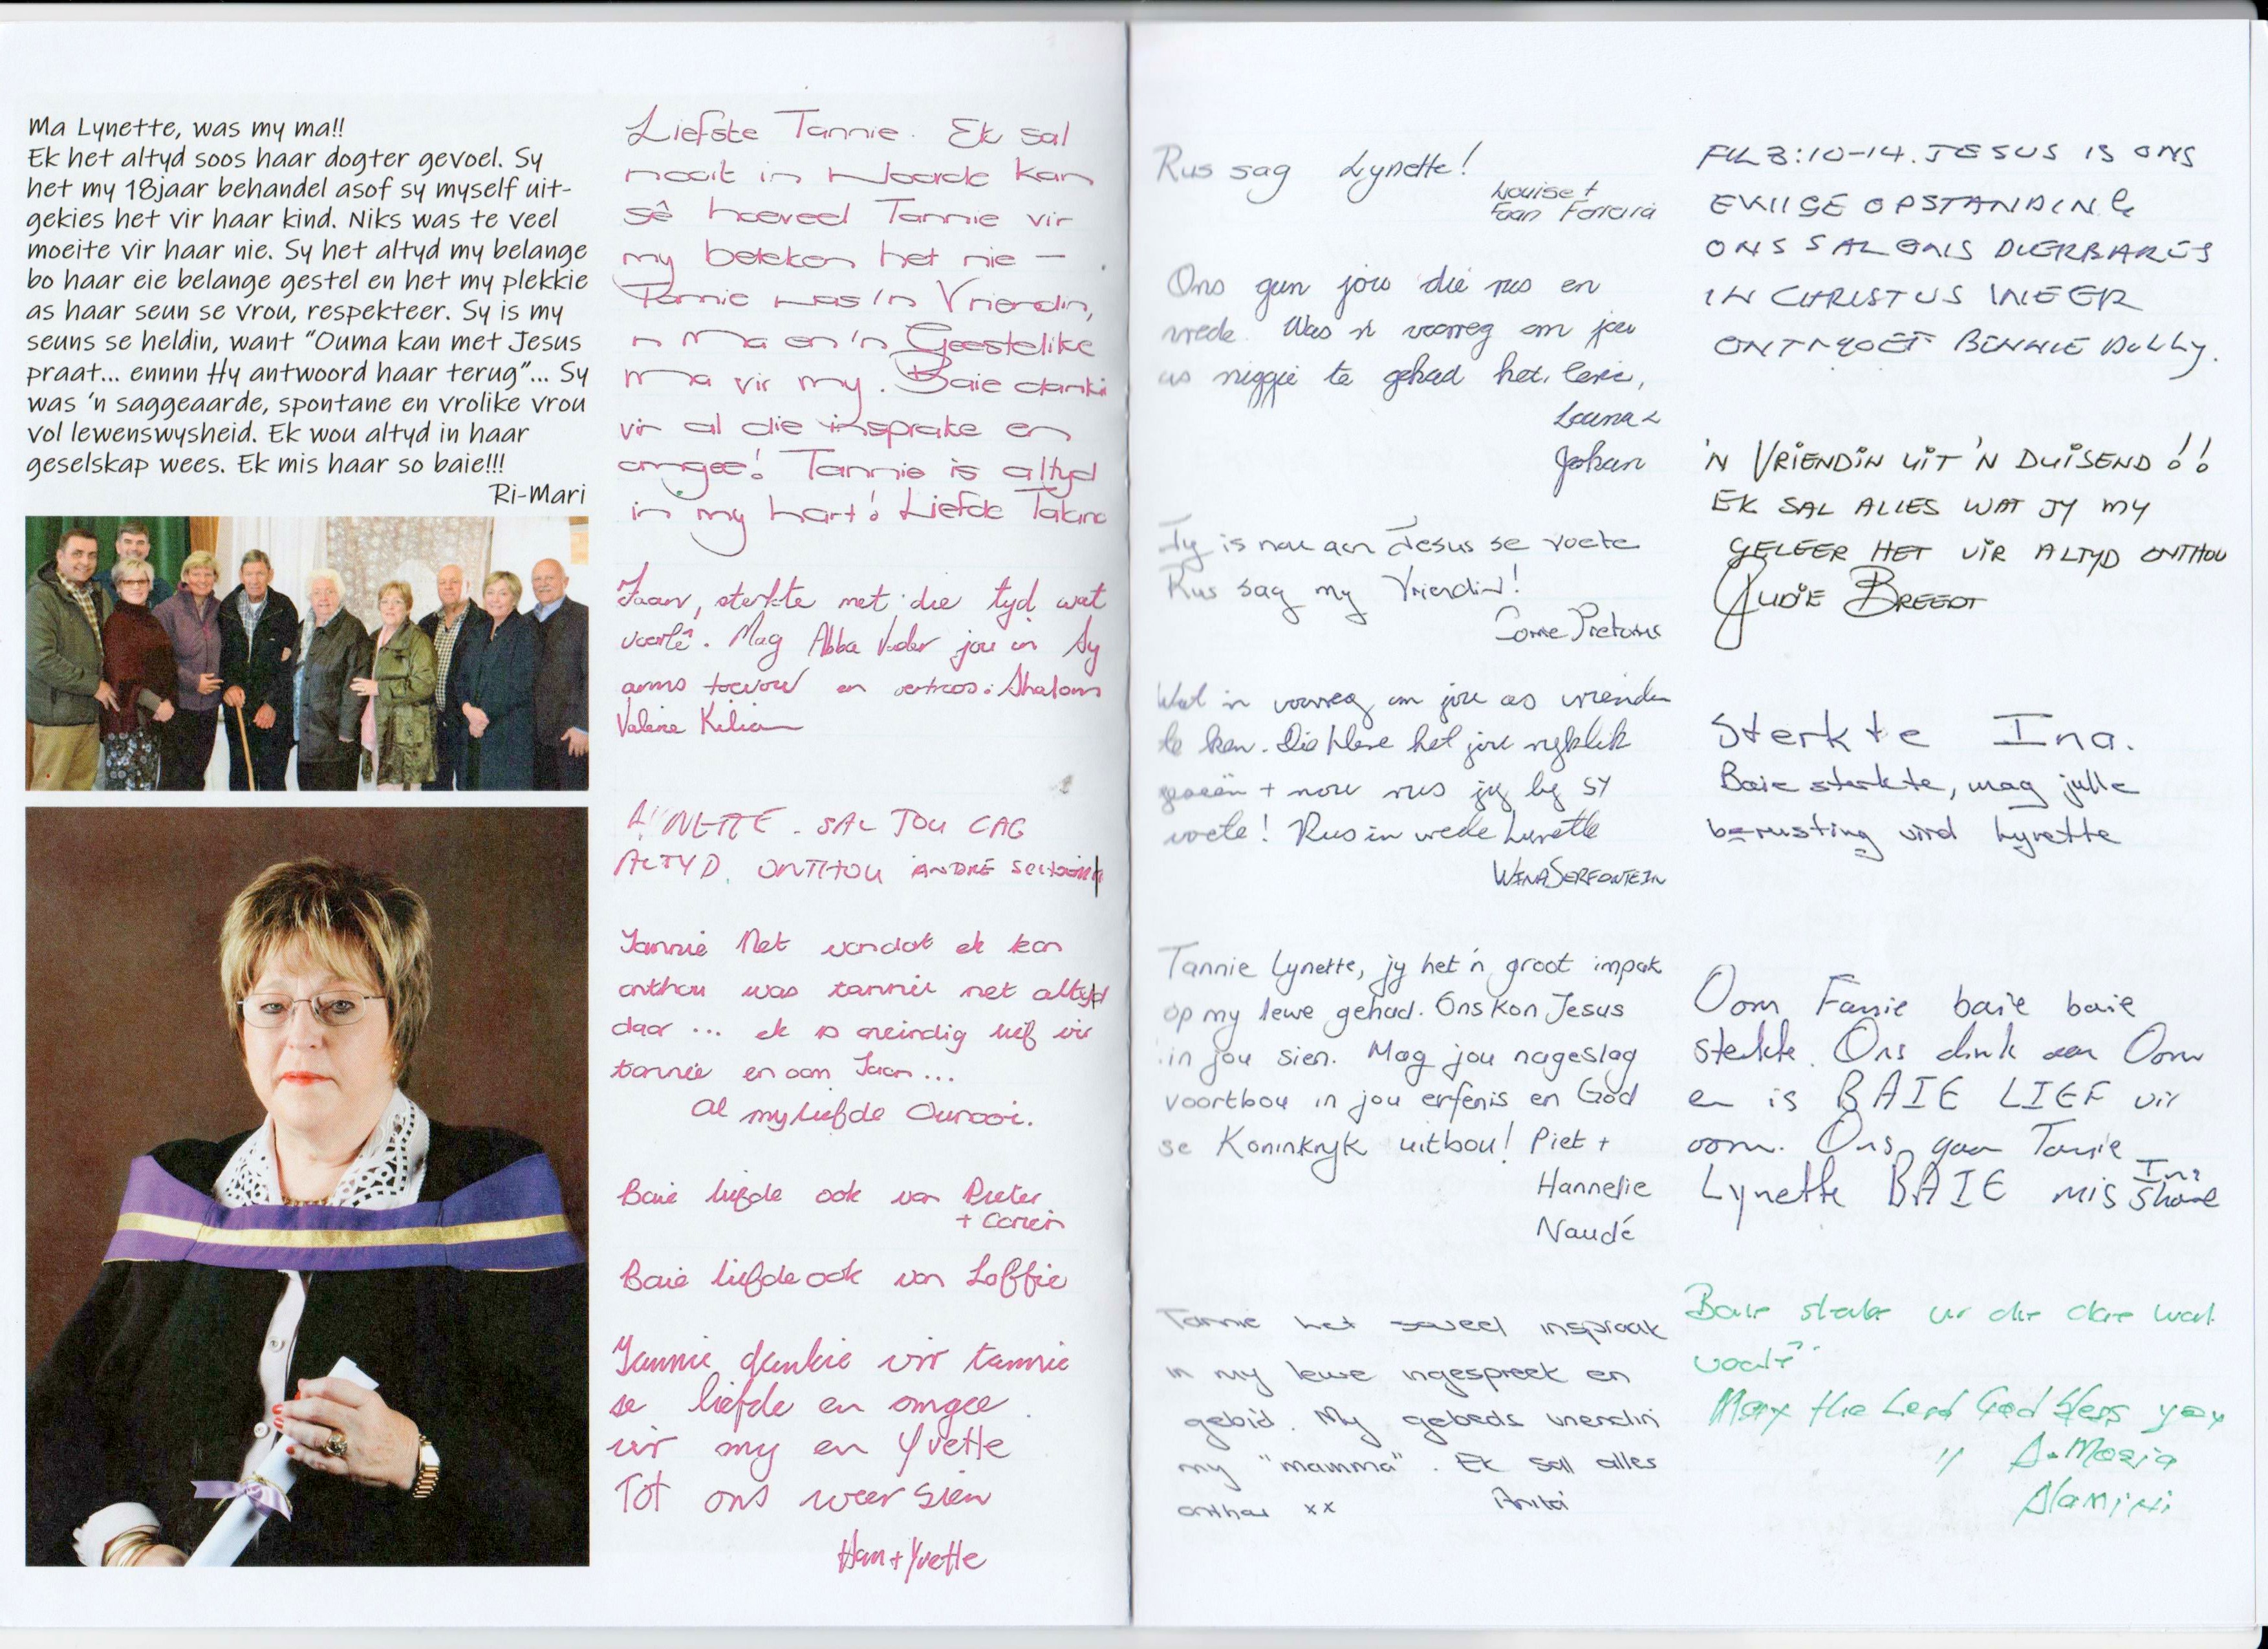 Ma Lynette, was my ma!!
Ek het altyd soos haar dogter gevoel. Sy
het my 18jaar behandel asof sy myself uit-
gekies het vir haar kind. Niks was te veel
moeite vir haar nie. Sy het altyd my belange
bo haar eie belange gestel en het my plekkie
as haar seun se vrou, respekteer. Sy is my
seuns se heldin, want "Ouma kan met Jesus
praat... ennnn Hy antwoord haar terug"... Sy
was 'n saggeaarde, spontane en vrolike vrou
vol lewenswysheid. Ek wou altyd in haar
geselskap wees. Ek mis haar so baie!!!
Ri-Mari
Liefste Tannie. Ek sal
nooit in woorde kan
sê hoeveel Tannie vir
my beteken het nie –
Tannie was 'n Vriendin,
'n Ma en 'n Geestelike
Ma vir my. Baie dankie
vir al die insprake en
omgee! Tannie is altyd
in my hart! Liefde
Jaan, sterkte met die tyd wat
voorlê. Mag Abba Vader jou in Sy
arms toevou en vertroos. Shalom
Valerie Kilian
SAL JOU LAG
ALTYD ONTHOU ANDRÉ
Tannie Net vandat ek kan
onthou was tannie net altyd
daar ... ek is oneindig lief vir
tannie en oom Jaan...
Al my liefde Ounooi.
Baie liefde ook van Pieter
+ Corien
Baie liefde ook van Loffie
Tannie dankie vir tannie
se liefde en omgee
vir my en Yvette
Tot ons weer sien
Han + Yvette
Rus sag Lynette!
Louise +
Faan Ferreira
Ons gun jou die rus en
vrede. Was 'n voorreg om jou
as niggie te gehad het.
Louna &
Johan
Jy is nou aan Jesus se voete
Rus sag my Vriendin!
Pretorius
Wat 'n voorreg om jou as vriendin
te ken. Die Here het jou ryklik
geseën + nou rus jy by Sy
voete! Rus in vrede Lynette
WINA SERFONTEIN
Tannie Lynette, jy het 'n groot impak
op my lewe gehad. Ons kon Jesus
in jou sien. Mag jou nageslag
voortbou in jou erfenis en God
se Koninkryk uitbou! Piet +
Hannelie
Naudé
Tannie het soveel inspraak
in my lewe ingespreek en
gebid. My gebeds vriendin
my "mamma". Ek sal alles
onthou xx Anita
FIL 3:10-14. JESUS IS ONS
EWIGE OPSTANDING
ONS SAL ONS DIERBARES
IN CHRISTUS WEER
ONTMOET BENNIE DOLLY.
'N VRIENDIN UIT 'N DUISEND!!
EK SAL ALLES WAT JY MY
GELEER HET VIR ALTYD ONTHOU
JUDIE BREEDT
Sterkte Ina.
Baie sterkte, mag julle
berusting vind Lynette
Oom Fanie baie baie
sterkte. Ons dink aan Oom
en is BAIE LIEF vir
oom. Ons gaan Tannie
Lynette BAIE mis
Baie sterkte vir die dae wat
voorlê
May the Lord God bless you